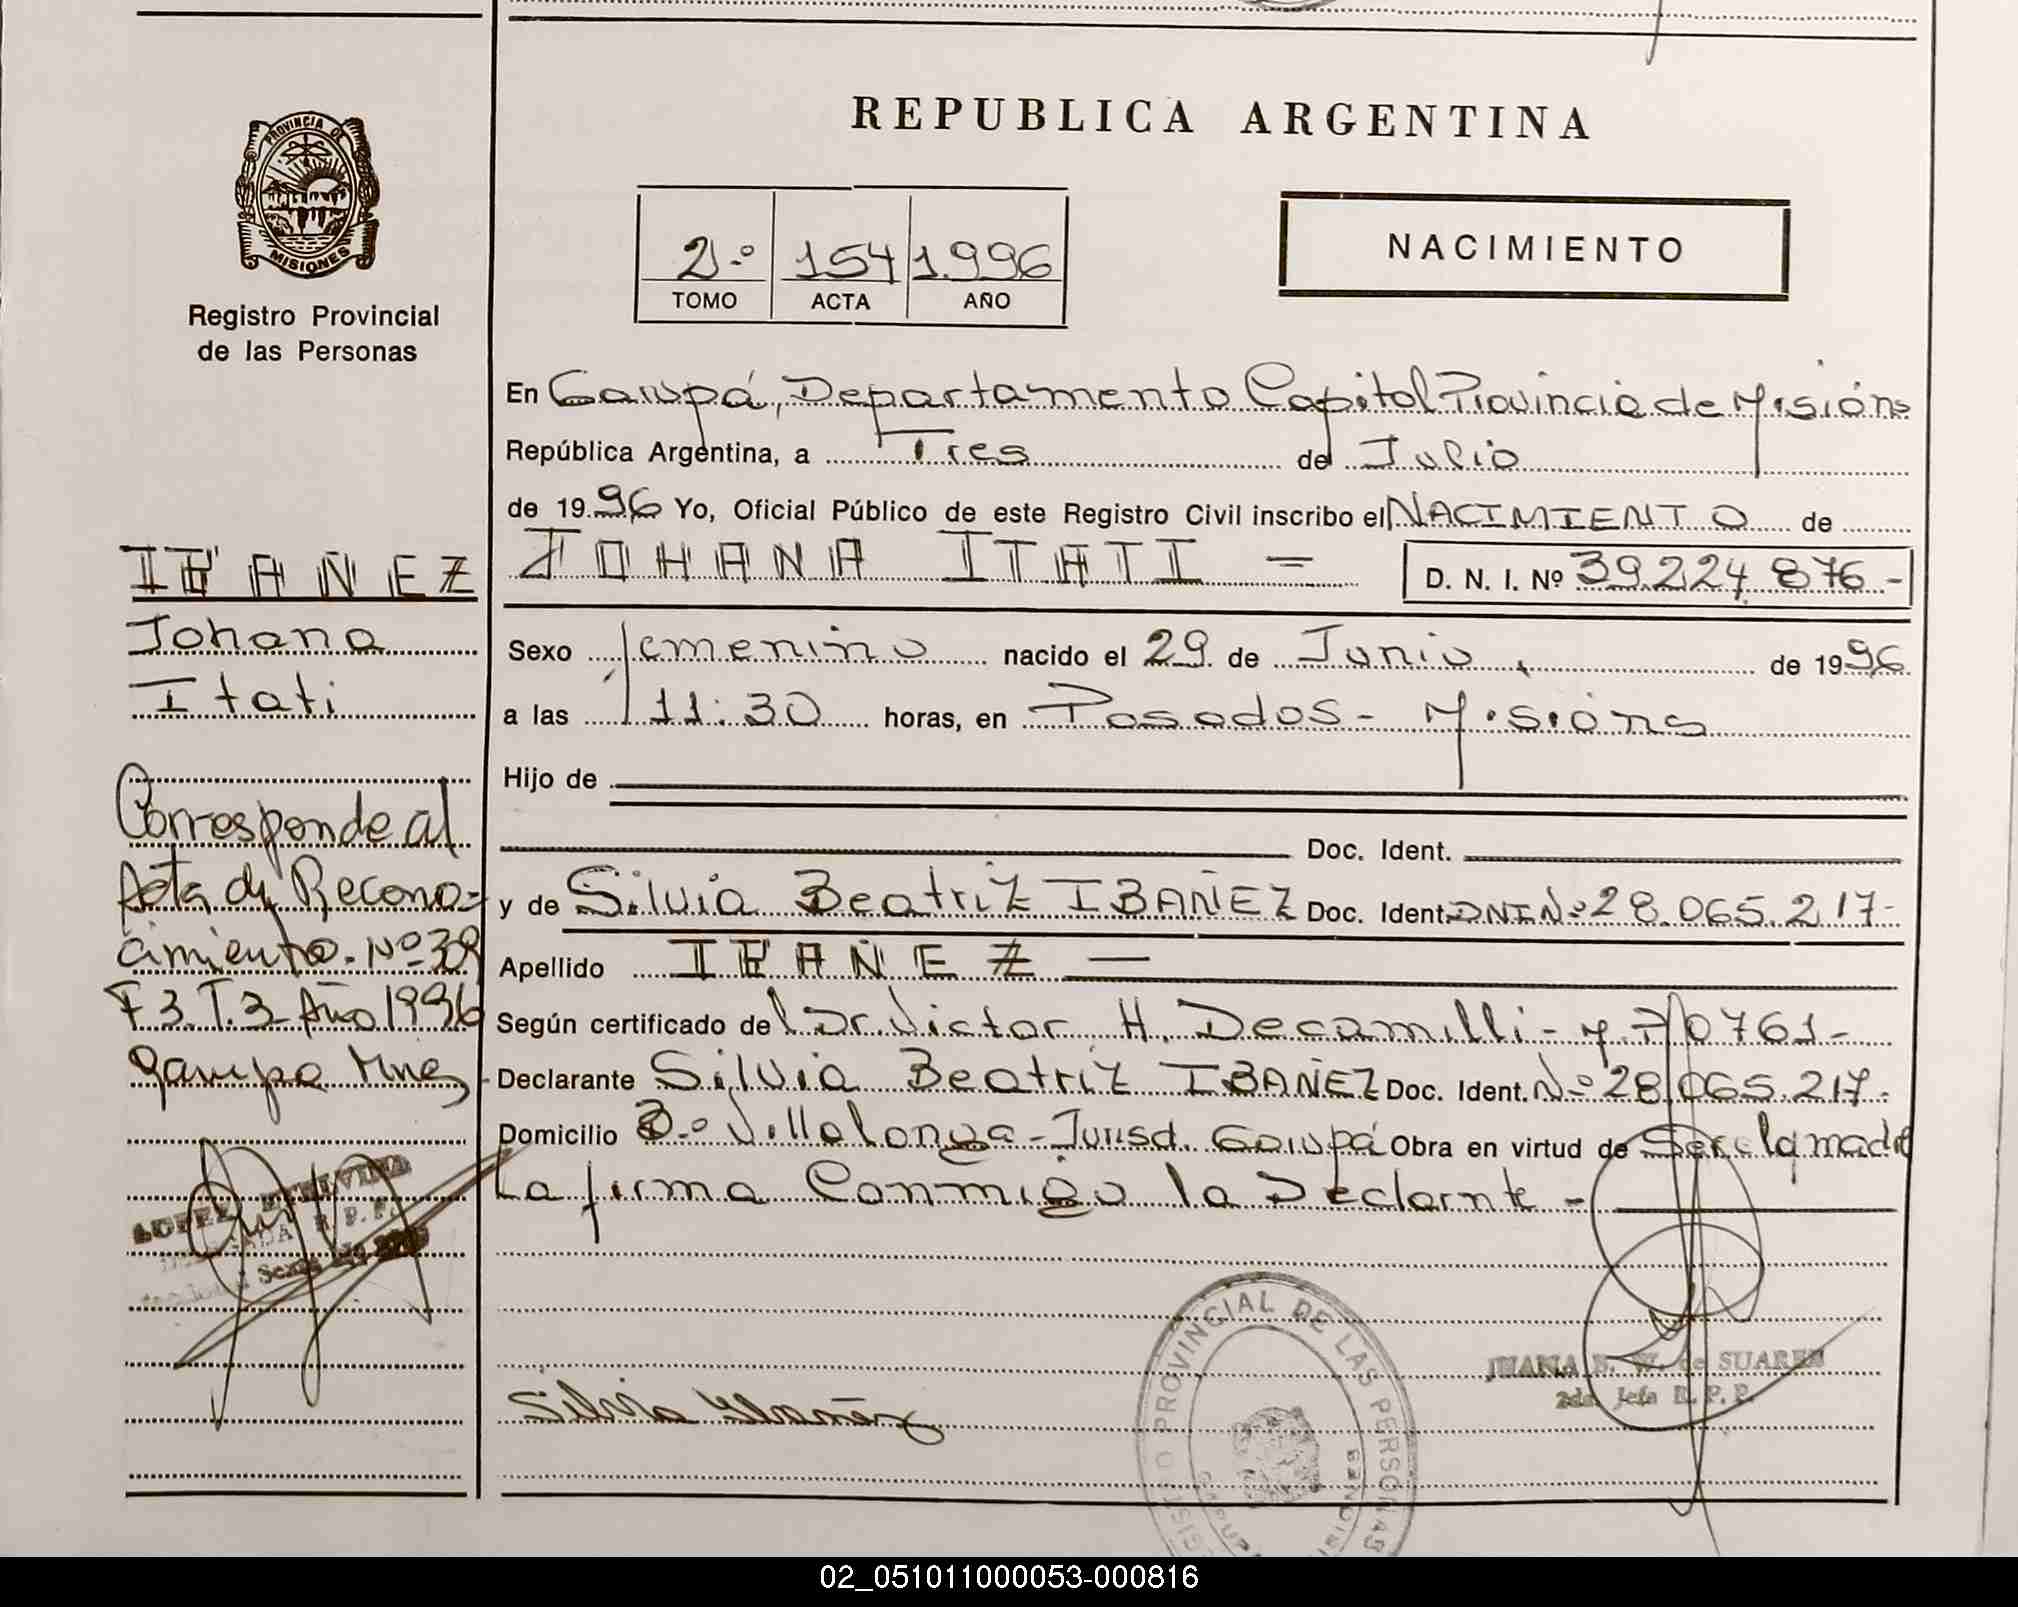 REPUBLICA ARGENTINA
PROVINCIA DE
MISIONES
Registro Provincial
de las Personas
2.º 154 1.996
TOMO ACTA AÑO
NACIMIENTO
En Garupá, Departamento Capital Provincia de Misións
República Argentina, a Tres de Julio
de 19 96 Yo, Oficial Público de este Registro Civil inscribo el NACIMIENTO de
JOHANA ITATI =
D. N. I. Nº 39.224.876.-
Sexo femenino nacido el 29 de Junio, de 1996
a las 11:30 horas, en Posadas - Misións
Hijo de
Doc. Ident.
y de Silvia Beatriz IBAÑEZ Doc. Ident. DNI Nº 28.065.217-
Apellido IBAÑEZ —
Según certificado del Dr. Victor H. Decamilli - M.P 0761-
Declarante Silvia Beatriz IBAÑEZ Doc. Ident. Nº 28.065.217.
Domicilio Bº Villalonga - Jurisd. Garupá Obra en virtud de Ser la madre
La firma Conmigo la Declarnte -
IBAÑEZ
Johana
Itati
Corresponde al
Acta de Recono-
cimiento. Nº 39
F 3. T. 3 Año 1996
Garupa Mnes
LOPEZ ETELVINA
R. P. P.
Silvia Ibañez
REGISTRO PROVINCIAL DE LAS PERSONAS
JUANA N. W. de SUAREZ
2da. Jefa R. P. P.
02_051011000053-000816